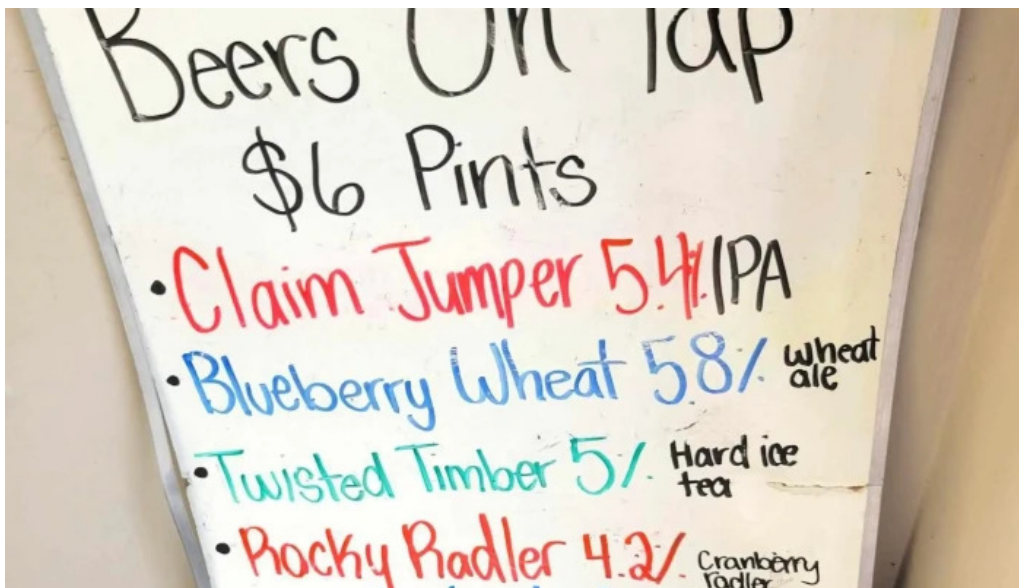 Beers On Tap
$6 Pints
• Claim Jumper 5.4% IPA
• Blueberry Wheat 5.8% wheat ale
• Twisted Timber 5% Hard ice tea
• Rocky Radler 4.2% Cranberry radler